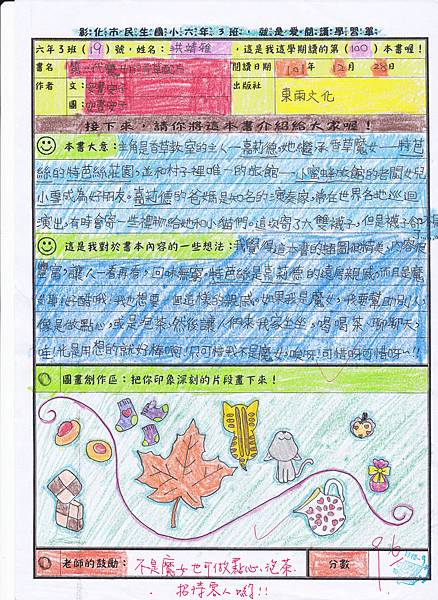 彰化市民生國小六年3班，就是愛閱讀學習單
六年3班(19)號，姓名：洪靖雅，這是我這學期讀的第(100)本書喔！
書名 閱讀日期 101年12月28日
作者 文：安晝安子 出版社 東雨文化
圖：安晝安子
接下來，請你將這本書介紹給大家喔！
本書大意：主角是香草教室的主人—嘉莉德，她繼承香草魔女—特芭
絲的特芭絲莊園，並和村子裡唯一的旅館—小蜜蜂旅館的老闆女兒
小雪成為好朋友。嘉莉德的爸媽是知名的演奏家，常在世界各地巡迴
演出，有時會寄一些禮物給她和小貓們。這次寄了大雙襪子，但是襪子卻
這是我對於書本內容的一些想法：我覺得這本書的插圖很精美，內容很
豐富，讓人一看再看，回味無窮。特芭絲是嘉莉德的遠房親戚，而且是魔
女耶！好酷哦！我也想要一個這樣的親戚。如果我是魔女，我要幫助別人，
像是做點心，或是泡茶，然後讓人們來我家坐坐，喝喝茶、聊聊天，
哇！光是用想的就好棒啊！只可惜我不是魔女，唉呀！可惜呀可惜呀～!!
圖畫創作區：把你印象深刻的片段畫下來！
老師的鼓勵：不是魔女也可做點心、泡茶、 分數 96
招待客人喲!!